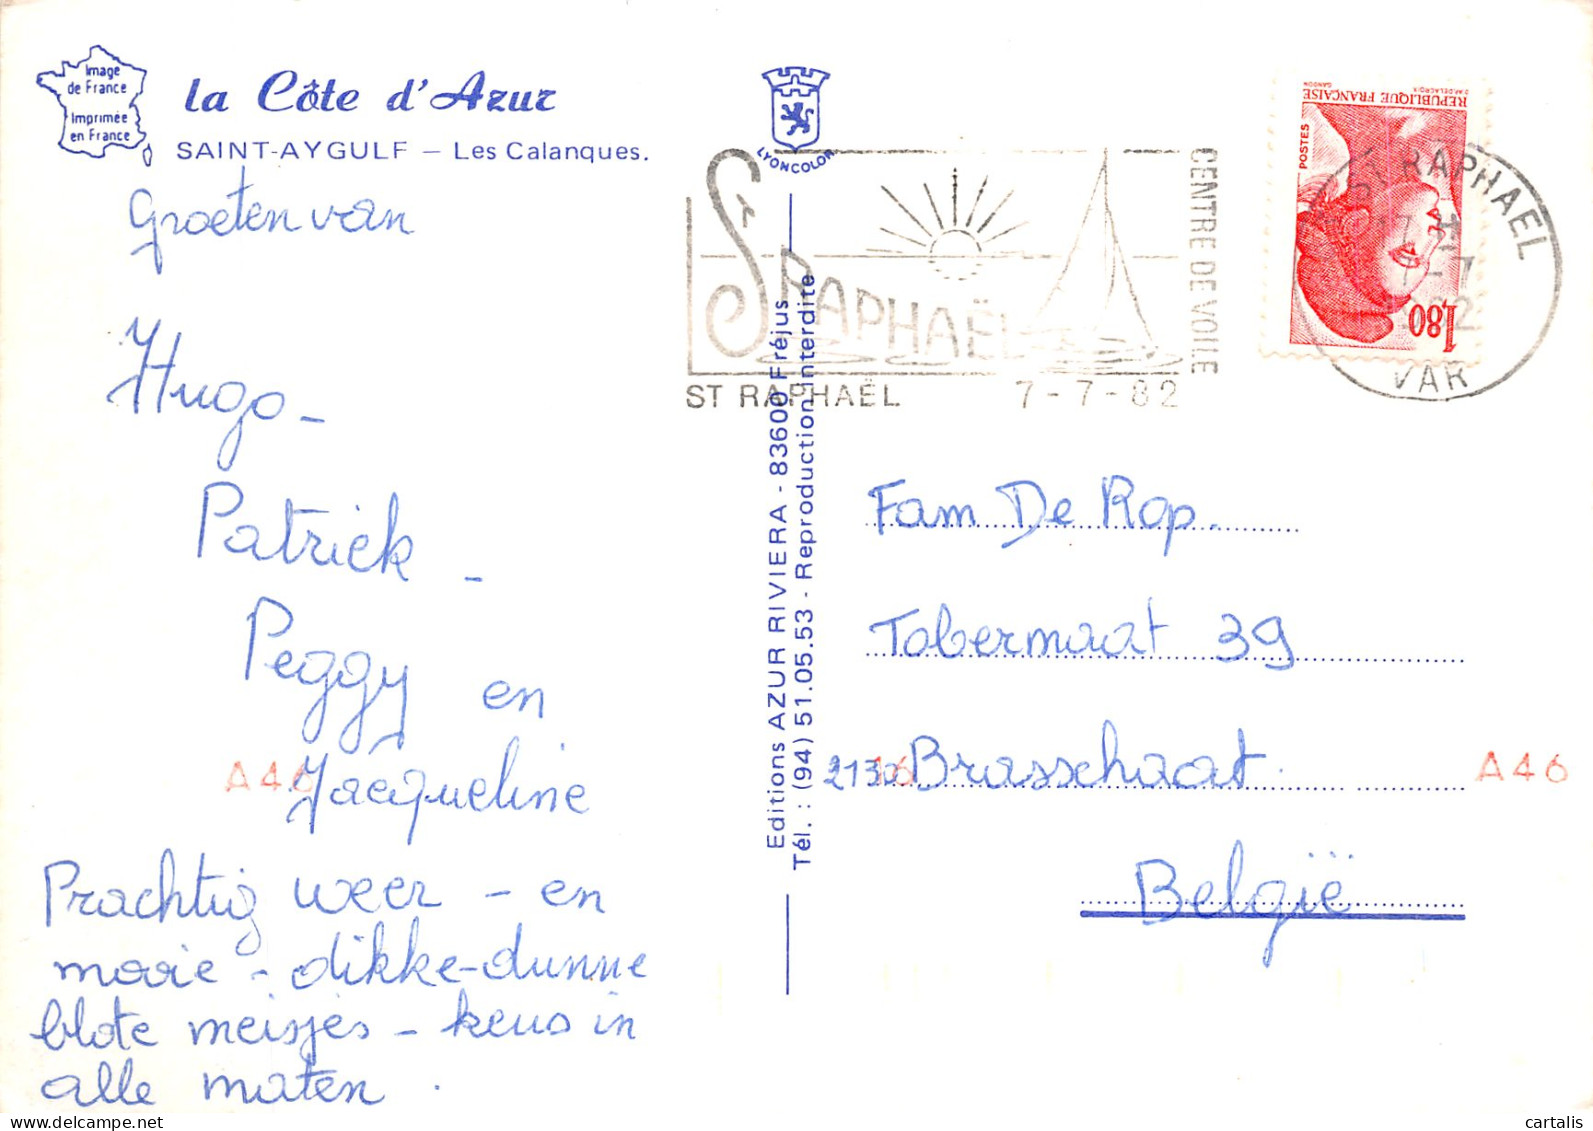 Image
de France
Imprimée
en France
la Côte d'Azur
SAINT-AYGULF – Les Calanques.
Groeten van
Hugo -
Patrick -
Peggy en
Jacqueline
A46
Prachtig weer - en
mooie - dikke-dunne
blote meisjes - keus in
alle maten.
LYONCOLOR
Editions AZUR RIVIERA - 83600 Fréjus
Tél. : (94) 51.05.53 - Reproduction interdite
ST RAPHAËL
CENTRE DE VOILE
ST RAPHAËL 7-7-82
REPUBLIQUE FRANÇAISE
POSTES
1,80
ST RAPHAEL
VAR
Fam De Rop.
Tobermaat 39
2130 Brasschaat.
A46
België
cartalis
www.delcampe.net